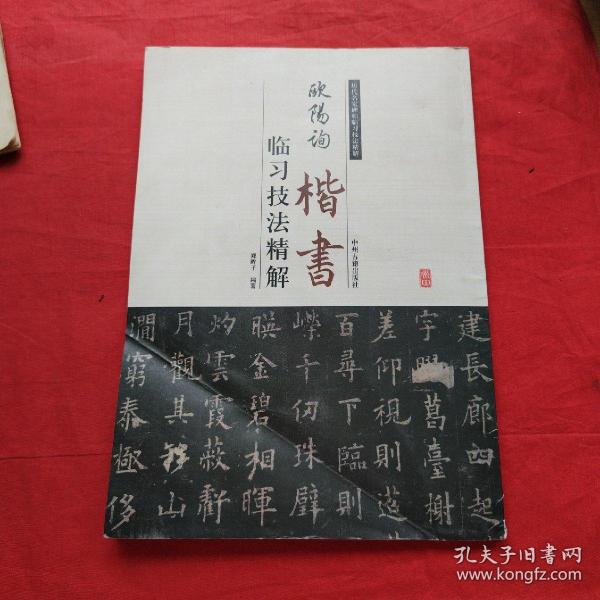 历代名家碑帖临习技法精解
欧陽询
楷書
临习技法精解
编著
中州古籍出版社
建長廊四起
宇膠葛臺榭
差仰視則迢
百尋下臨則
嶸千仞珠璧
暎金碧相暉
灼雲霞蔽虧
月觀其移山
澗窮泰極侈
孔夫子旧书网
www.kongfz.com